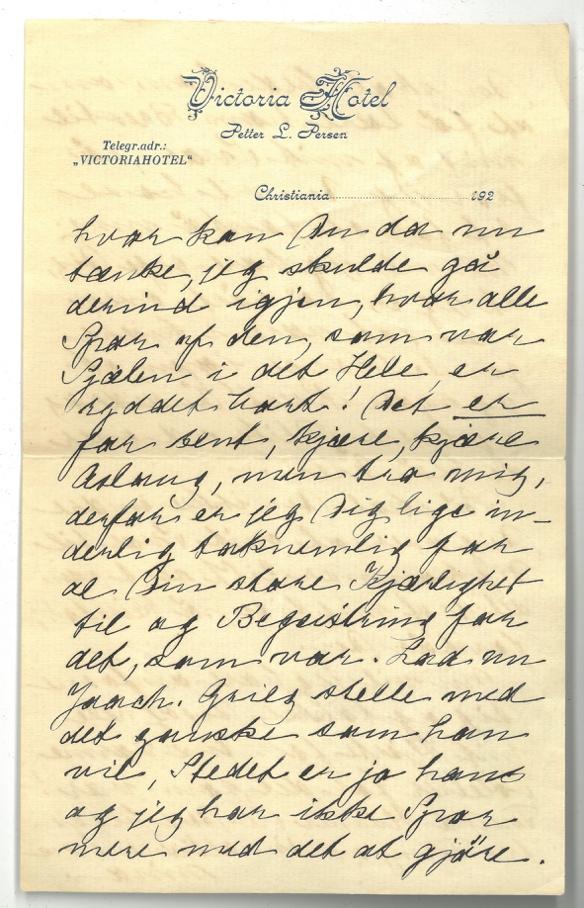 Victoria Hotel
Petter L. Persen
Telegr.adr.:
„VICTORIAHOTEL“
Christiania 192
hvor kan Du da nu
tænke, jeg skulde gå
derind igjen, hvor alle
Spor af den, som var
Sjælen i det Hele, er
ryddet bort! Det er
for sent, kjære, kjære
Aslaug, men tro mig,
derfor er jeg Dig lige in-
derlig taknemlig for
al Din store Kjærlighet
til og Begeistring for
det, som var. Lad nu
Joach. Grieg stelle med
det ganske som han
vil, Stedet er jo hans
og jeg har ikke Spor
mere med det at gjöre.